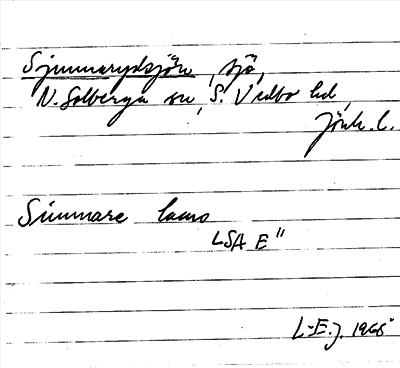 Sjunnarydsjön, sjö,
N. Solberga sn, S. Vedbo hd,
Jönk. l.
Sunnare
LSA E"
L-E.J. 1965